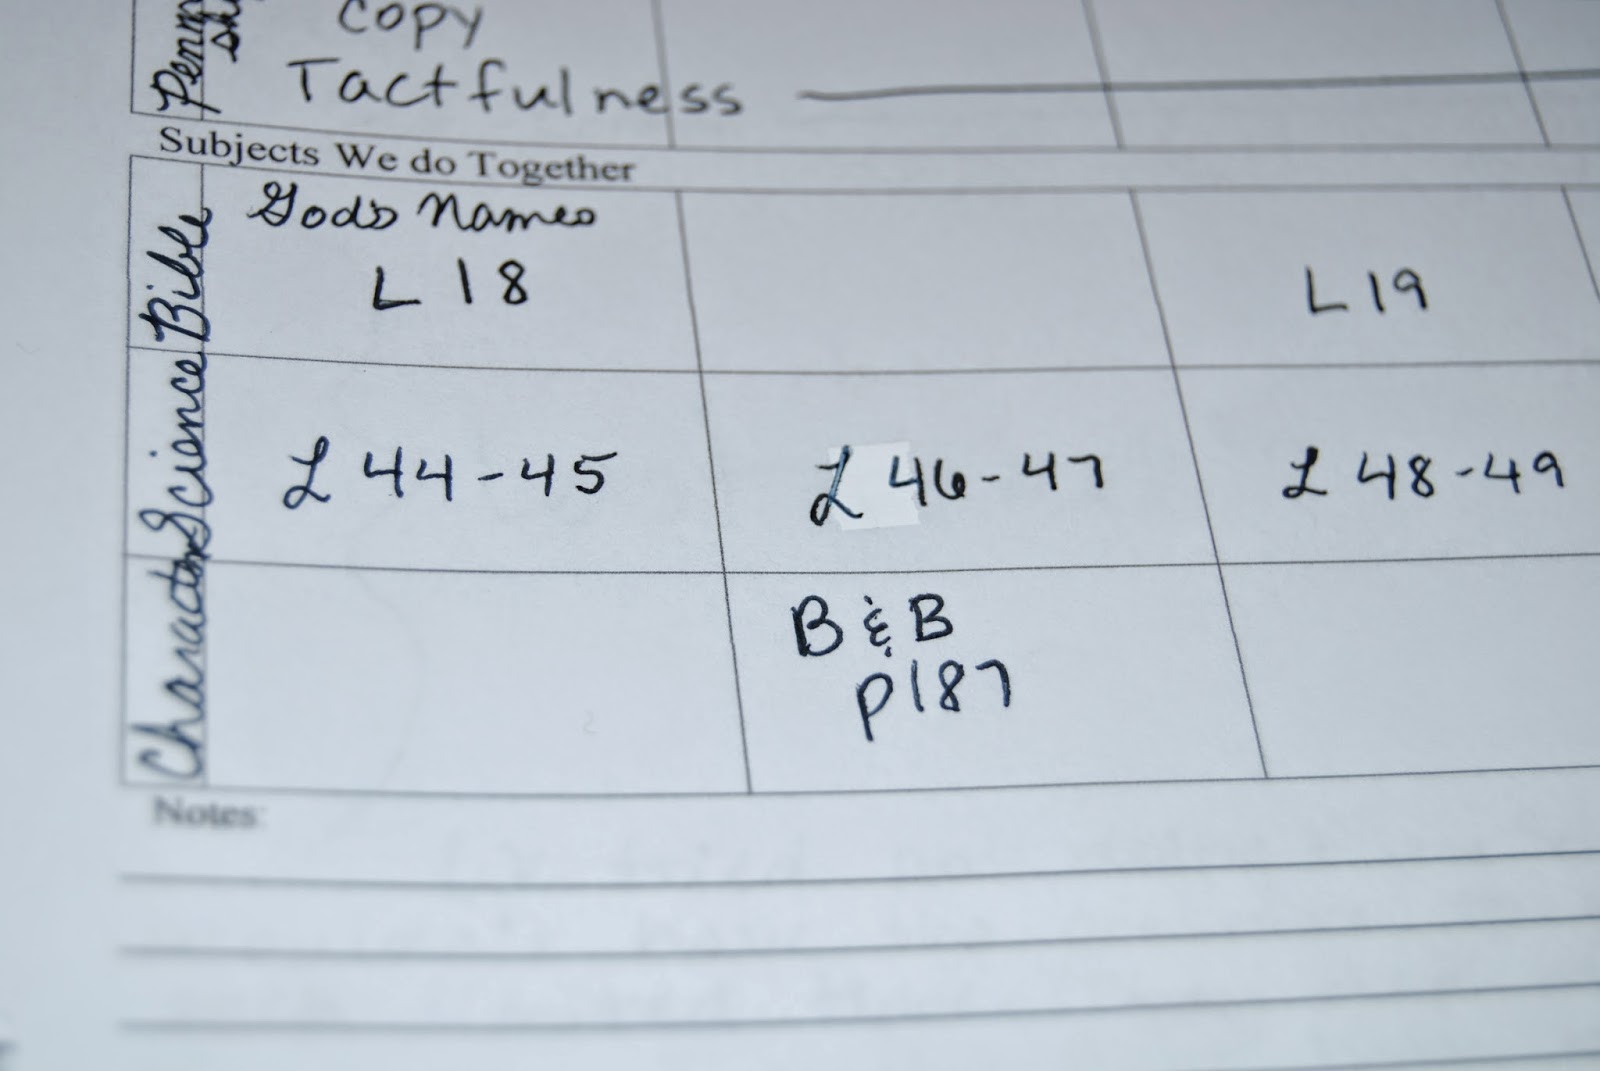 copy
Tactfulness
Subjects We do Together
Bible
God's Names
L 18
L 19
Science
L 44-45
L 46-47
L 48-49
Character
B & B
p187
Notes: